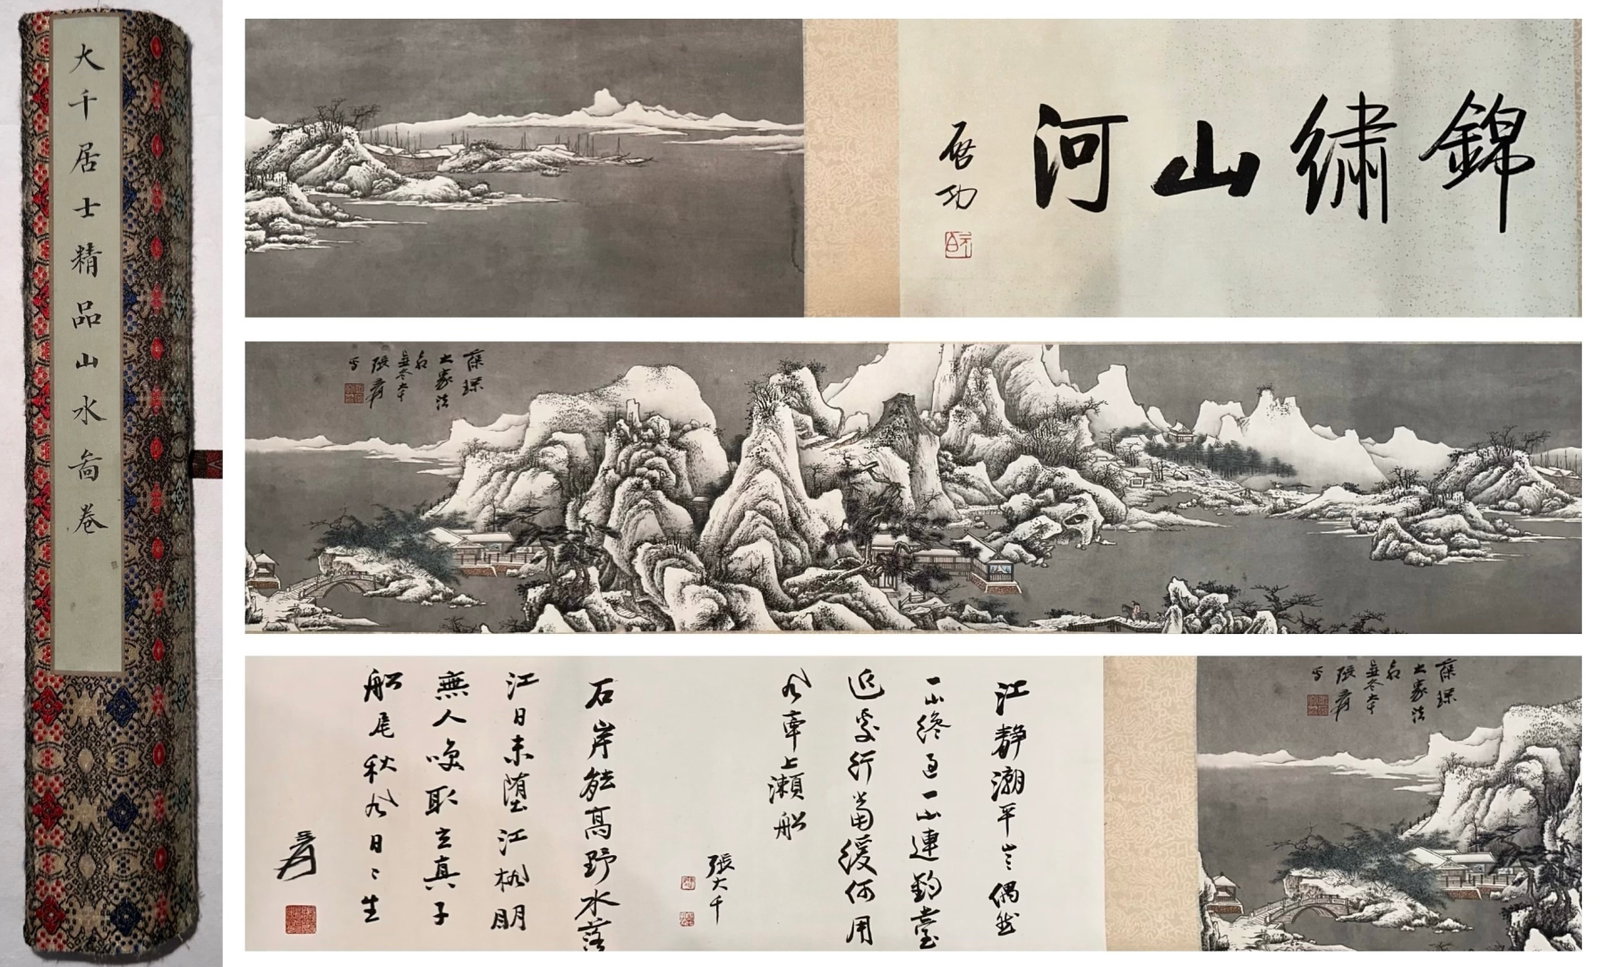 大千居士精品山水畵卷
錦繡山河
启功
大家法
張爰
写
大家法
張爰
写
江靜潮平岸偶然
一山終過一山連釣臺
近處行當緩何用
風牽上瀨船
張大千
石岸能高野水落
江日未墮江楓明
無人喚取玄真子
船尾秋風日日生
爰